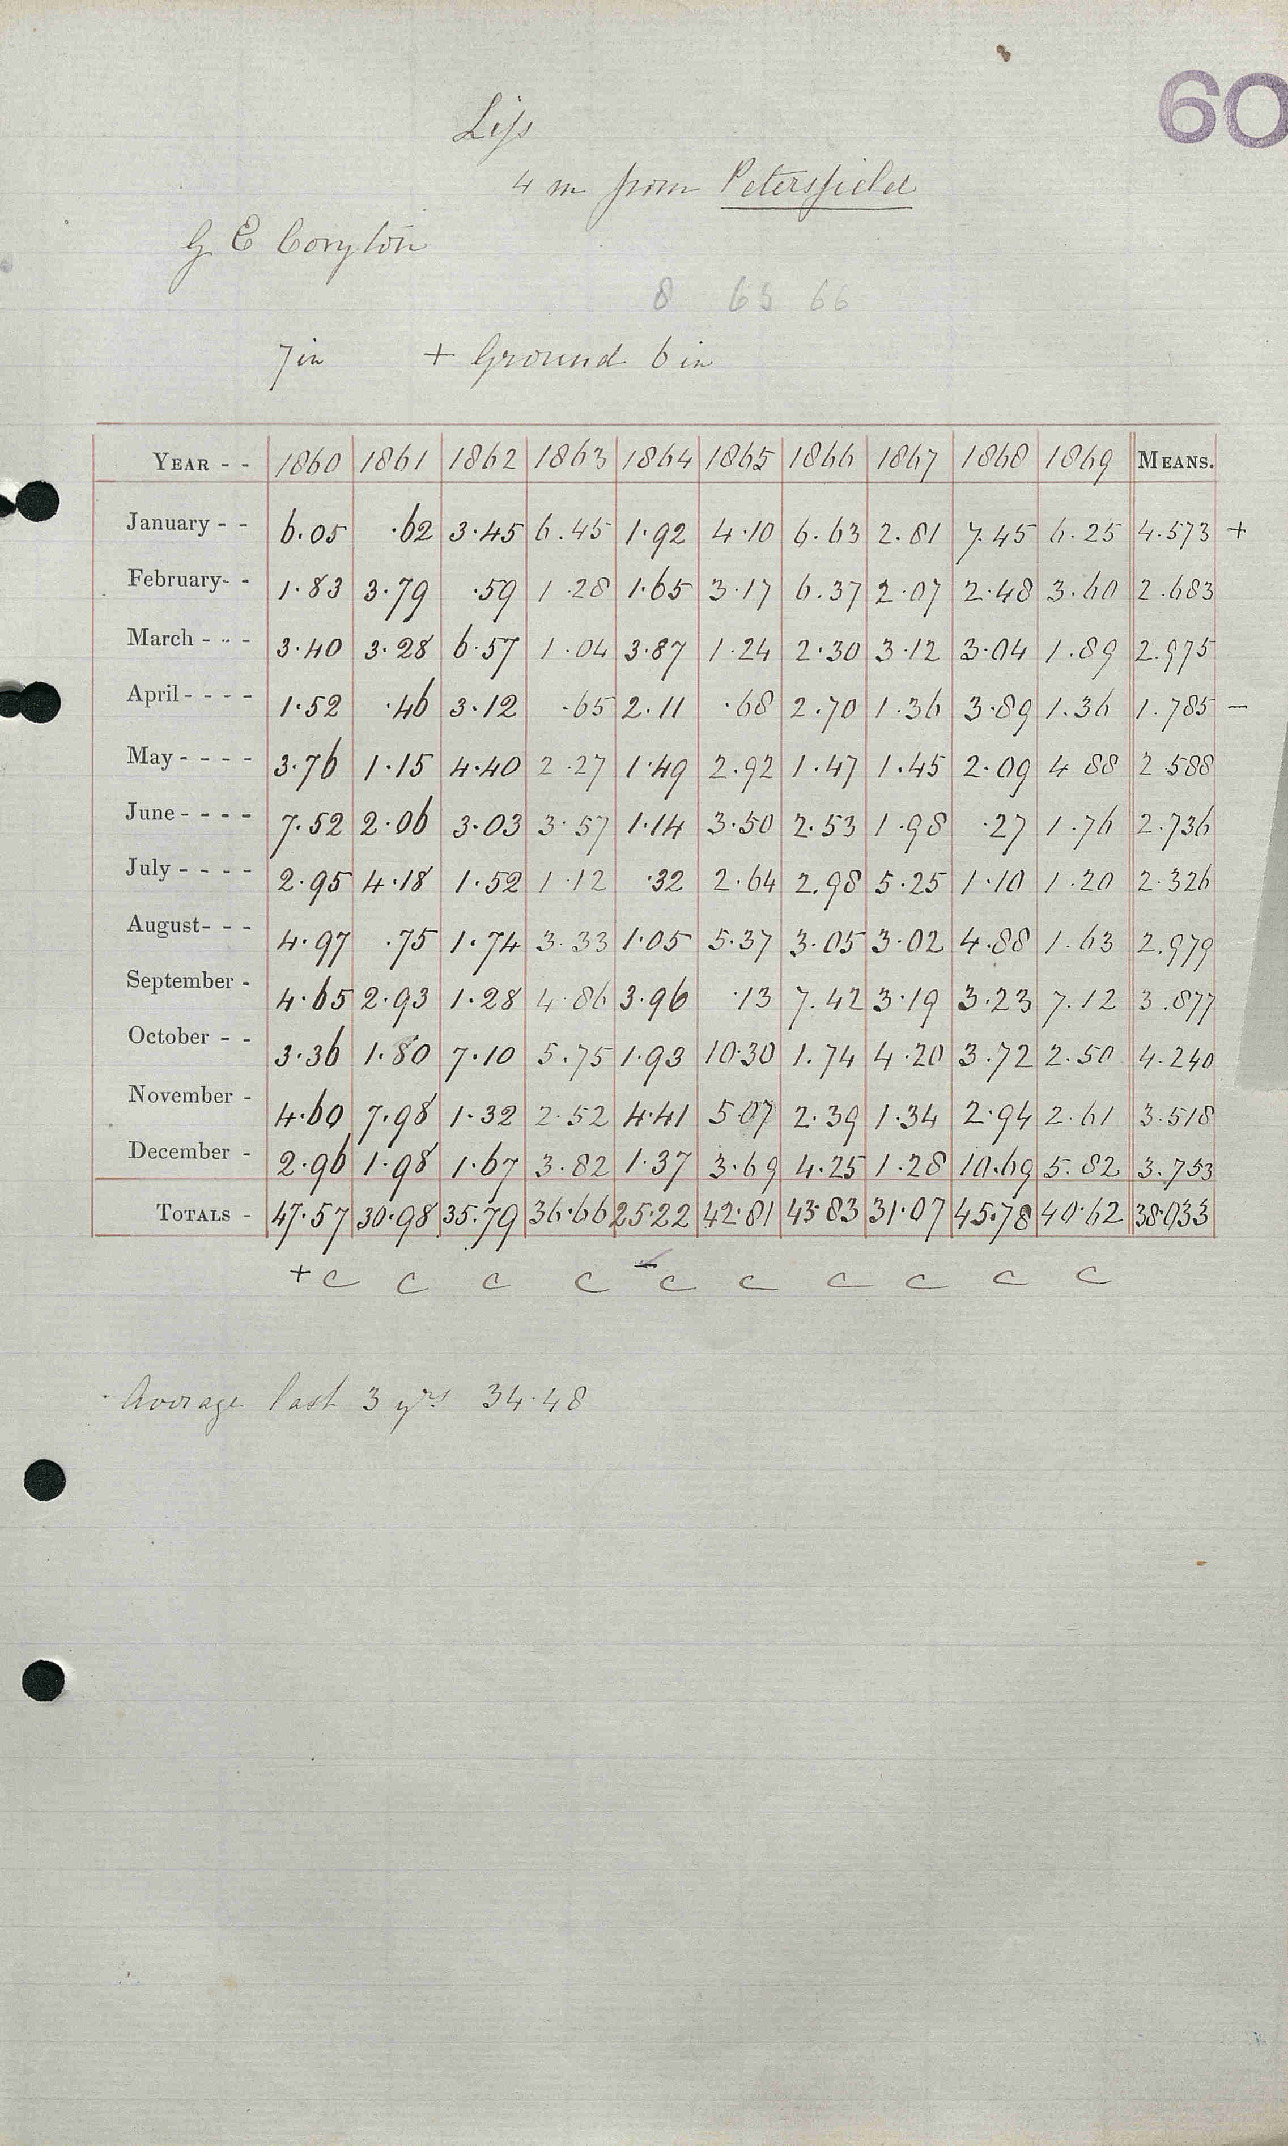 60
Liss
4 m from Petersfield
G E Coryton
8 65 66
7 in + Ground 6 in
YEAR - - 1860 1861 1862 1863 1864 1865 1866 1867 1868 1869 MEANS.
January - - 6.05 .62 3.45 6.45 1.92 4.10 6.63 2.81 7.45 6.25 4.573 +
February - - 1.83 3.79 .59 1.28 1.65 3.17 6.37 2.07 2.48 3.60 2.683
March - - - 3.40 3.28 6.57 1.04 3.87 1.24 2.30 3.12 3.04 1.89 2.975
April - - - - 1.52 .46 3.12 .65 2.11 .68 2.70 1.36 3.89 1.36 1.785 -
May - - - - 3.76 1.15 4.40 2.27 1.49 2.92 1.47 1.45 2.09 4.88 2.588
June - - - - 7.52 2.06 3.03 3.57 1.14 3.50 2.53 1.98 .27 1.76 2.736
July - - - - 2.95 4.18 1.52 1.12 .32 2.64 2.98 5.25 1.10 1.20 2.326
August - - - 4.97 .75 1.74 3.33 1.05 5.37 3.05 3.02 4.88 1.63 2.979
September - 4.65 2.93 1.28 4.86 3.96 .13 7.42 3.19 3.23 7.12 3.877
October - - 3.36 1.80 7.10 5.75 1.93 10.30 1.74 4.20 3.72 2.50 4.240
November - 4.60 7.98 1.32 2.52 4.41 5.07 2.39 1.34 2.94 2.61 3.518
December - 2.96 1.98 1.67 3.82 1.37 3.69 4.25 1.28 10.69 5.82 3.753
TOTALS - 47.57 30.98 35.79 36.66 25.22 42.81 43.83 31.07 45.78 40.62 38.033
+ c c c c - c c c c c c
Average last 3 yrs 34.48